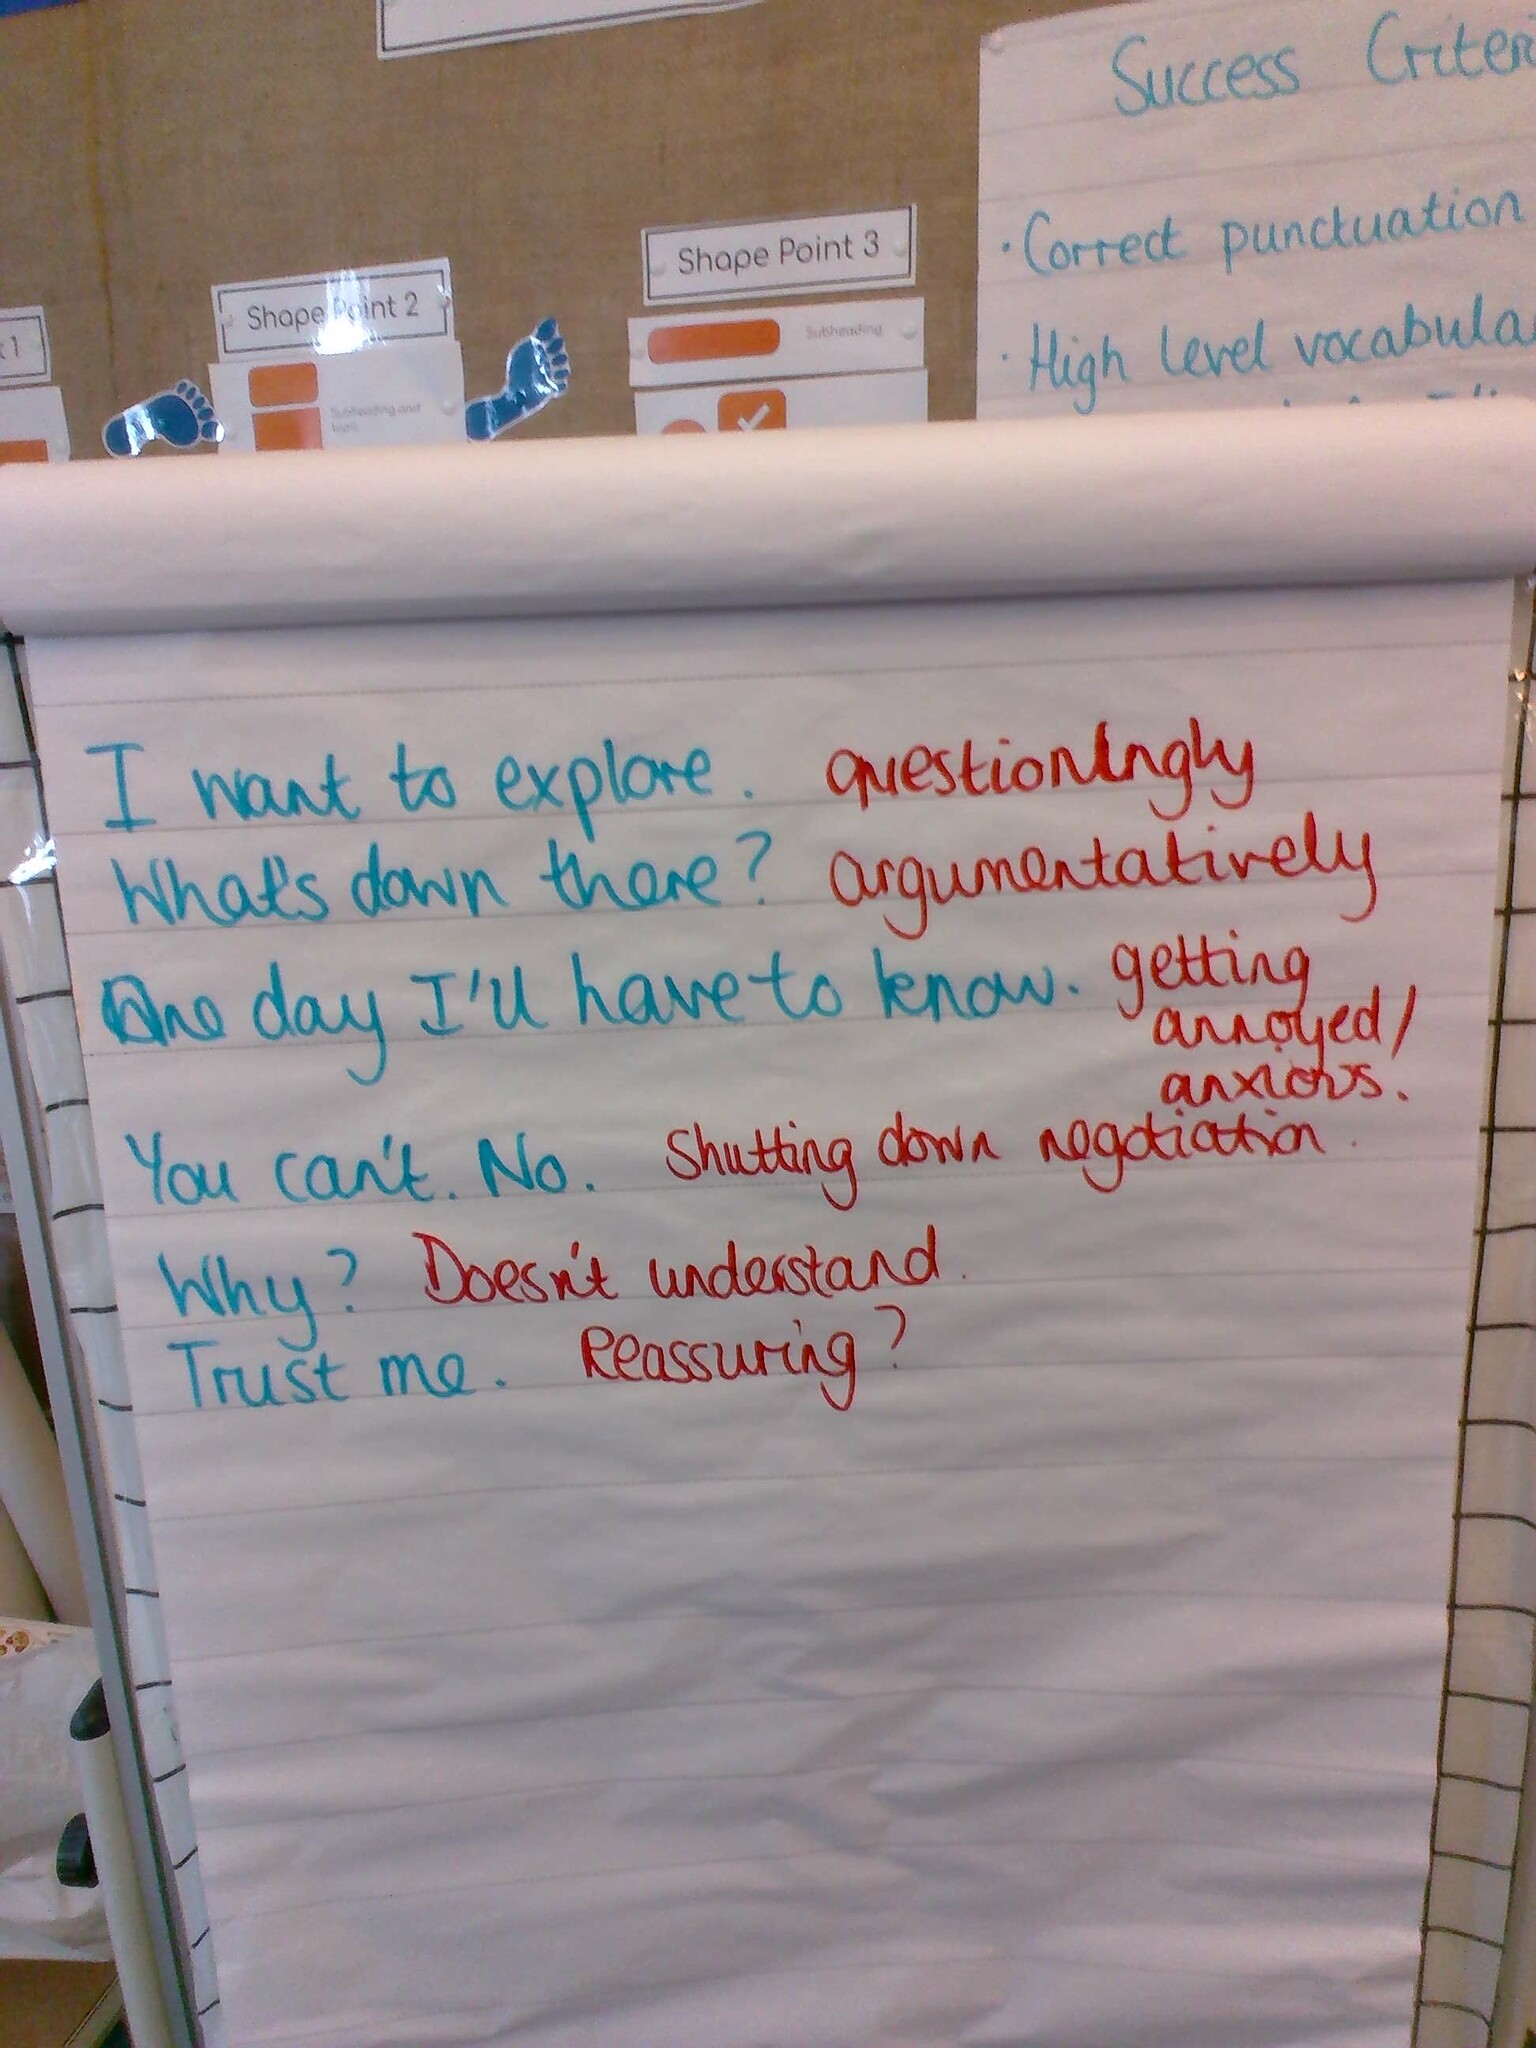 Success
· Correct punctuation
· High level
Shape Point 3
Subheading
Shape Point 2
Subheading and
I want to explore. questioningly
What's down there? argumentatively
One day I'll have to know. getting
annoyed/
anxious.
You can't. No. Shutting down negotiation.
Why? Doesn't understand.
Trust me. Reassuring?